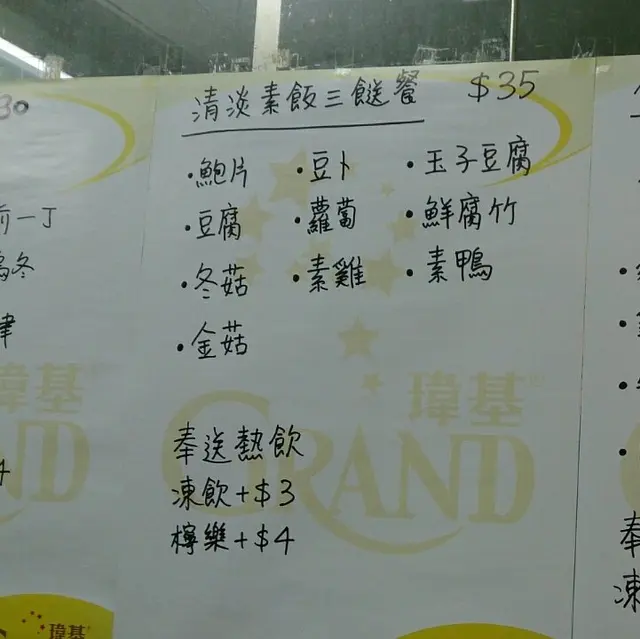 30
清淡素飯三餸餐 $35
•鮑片 •豆卜 •玉子豆腐
•豆腐 •蘿蔔 •鮮腐竹
•冬菇 •素雞 •素鴨
•金菇
奉送熱飲
凍飲+$3
檸樂+$4
瑋基
GRAND
前一丁
冬
4
瑋基
ND
瑋基
奉
凍